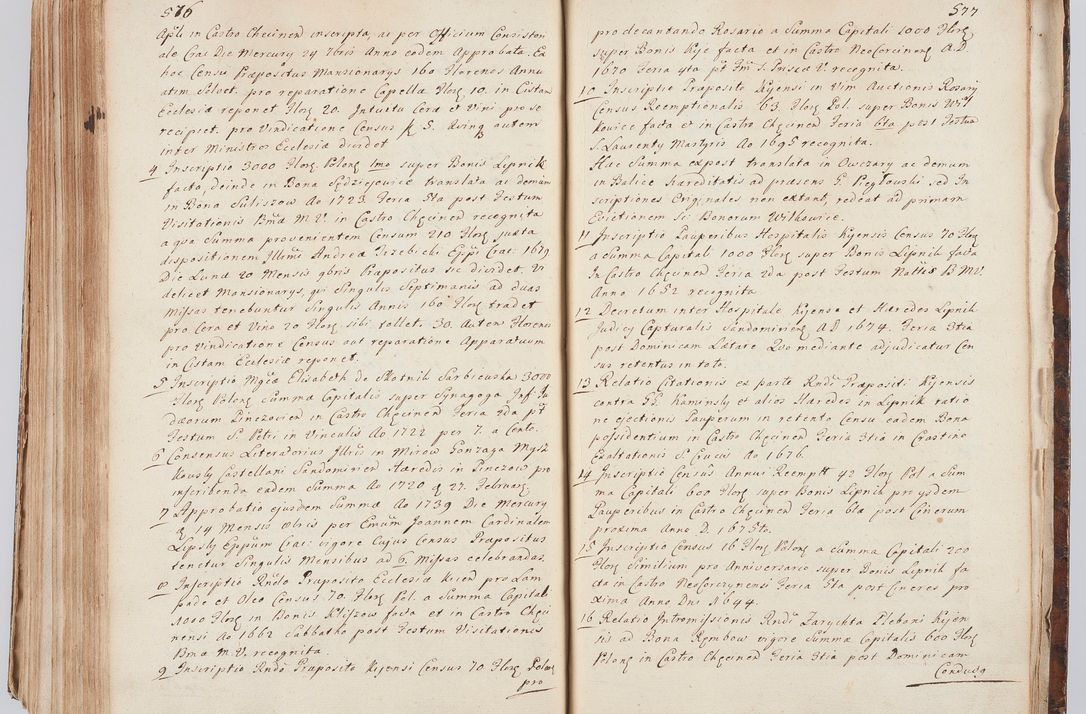 576
Apłi in Castro Chęcinen inscripta, ac per Officium Consistori
ale Crac Die Mercury 24 7bris Anno eodem Approbata. Ex
hoc Censu Præpositus Mansionarys 160 Florenos Annu
atim Solvet. pro reparatione Capellæ Floꝝ 10. in Cistam
Ecclesiæ reponet Floꝝ 20. Intuitu Ceræ et Vini pro se
recipiet. pro Vindicatione Census 5. autem
inter Ministros Ecclesiæ dividet
4 Inscriptio 3000 Floꝝ Polonꝝ 1mo super Bonis Lipnik
facto, deinde in Bona Sędziejowice translata ac demum
in Bona Suliszow Ao 1723 Feria 5ta post Festum
Visitationis Bmæ M V. in Castro Chęcinen recognita
a qua Summa provenientem Censum 210 Floꝝ juxta
dispositionem Illrmi Andreæ Trzebicki Eppi Crac: 1679
Die Lunæ 20 Mensis 9bris Præpositus sic dividet. Vi
delicet Mansionarys, qui Singulis Septimanis ad duas
Missas tenebuntur Singulis Annis 160 Floꝝ tradet
pro Cera et Vino 20 Floꝝ sibi tollet. 30. Autem Florenos
pro Vindicatione Census aut reparatione Apparatuum
in Cistam Ecclesiæ reponet.
5 Inscriptio Mgcæ Elisabeth de Skotnik Sarbiewska 3000
Floꝝ Polonꝝ Summa Capitalis super Synagoga Inf: Ju
dæorum Pinczovien in Castro Chęcinen Feria 2da pt
Festum S. Petri in Vinculis Ao 1722 per 7. a Cento.
6 Consensus Literatorius Illrmi in Mirow Gonzaga Mysz
kowsky Castellani Sandomirien Hæredis in Pinczow pro
inscribenda eadem Summa Ao 1720 d 27. February.
7 Approbatio ejusdem Summæ Ao 1739 Die Mercury
d 14 Mensis 8bris per Emum Joannem Cardinalem
Lipsky Eppum Crac: vigore Cujus Census Præpositus
tenetur Singulis Mensibus ad 6. Missas celebrandas.
8 Inscriptio Rndo Præposito Ecclesiæ Kijen pro Lam
pade et Oleo Census 70. Floꝝ Pol. a Summa Capitali
1000 Floꝝ in Bonis Kliszow facta et in Castro Chęci
nensi Ao 1662 Sabbatho post Festum Visitationis
Bmæ M.V. recognita.
9 Inscriptio Rndo Præposito Kijensi Census 70 Floꝝ Polonꝝ
pro
577
pro decantando Rosario a Summa Capitali 1000 Floꝝ
super Bonis Kije facta et in Castro NeoCorcinenꝝ A.D
1670 Feria 4ta pt Fm S. Priscæ V. recognita.
10 Inscriptio Præposito Kijensi in Vim Auctionis Rosary
Census Reemptionalis 63 Floꝝ Pol. super Bonis Wit
kowice facta et in Castro Chęcinen Feria 6ta post Festum
S. Laurenty Martyris Ao 1695 recognita.
Hæc Summa expost translata in Owczary ac demum
in Balice Hæreditatis ad præsens G. Piegłowski sed In
scriptiones Originales non extant, redeat ad primam
Evictionem Sc: Bonorum Witkowice.
11 Inscriptio Pauperibus Hospitalis Kijensis Census 70 Floꝝ
a Summa Capitali 1000 Floꝝ super Bonis Lipnik facta
In Castro Chęcinen Feria 2da post Festum Nattis B.M.V.
Anno 1652 recognita
12 Decretum inter Hospitale Kijense et Hæredes Lipnik
Judicy Capturalis Sandomirien A.D 1674. Feria 3tia
post Dominicam Lætare Quo mediante adjudicatur Cen
sus retentus in toto.
13 Relatio Citationis ex parte Rndi Præpositi Kijensis
contra GG Kaminsky et alios Hæredes in Lipnik ratio
ne ejectionis Pauperum in retento Censu eadem Bona
possidentium in Castro Chęcinen Feria 3tia in Crastino
Exaltationis S. Crucis Ao 1676.
14 Inscriptio Census Annui Reemptt 42 Floꝝ Pol a Sum
ma Capitali 600 Floꝝ super Bonis Lipnik pro ysdem
Pauperibus in Castro Chęcinen Feria 6ta post Cinerum
proxima Anno D. 1675to.
15 Inscriptio Census 16 Floꝝ Polonꝝ a Summa Capitali 200
Floꝝ Similium pro Anniversario super Bonis Lipnik fa
cta in Castro NeoCorczynensi Feria 5ta post Cineres pro
xima Anno Dni 1644.
16 Relatio Intromissionis Rndi Zarychta Plebani Kijen
sis ad Bona Rembow vigore Summæ Capitalis 600 Floꝝ
Polonꝝ in Castro Chęcinen Feria 3tia post Dominicam
Conductꝝ